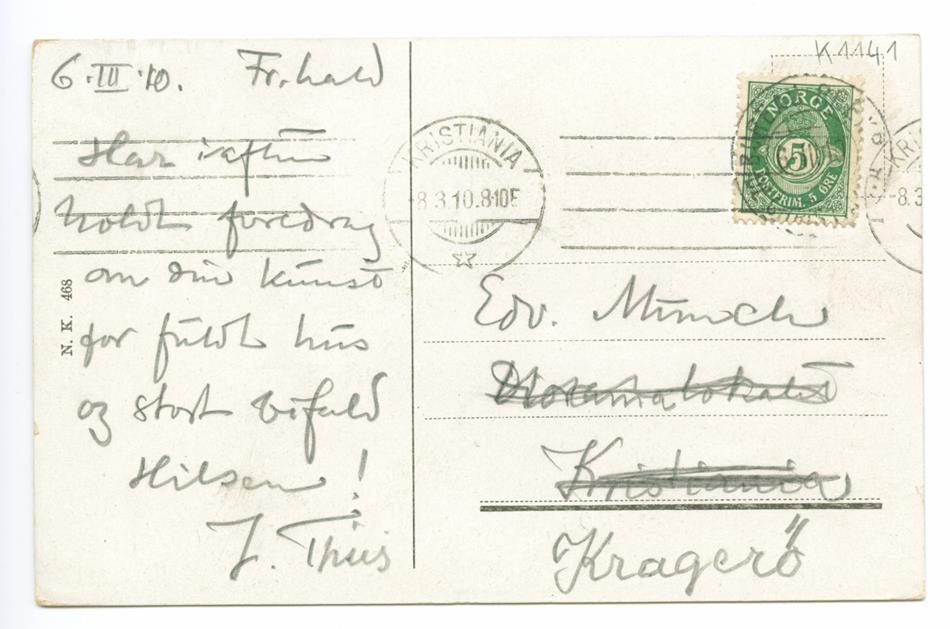 6.III.10. Fr.hald
Har iaften
holdt foredrag
om din kunst
for fuldt hus
og stort bifald
Hilsen!
J. Thiis
N. K. 468
K1141
NORGE
5
POSTFRIM. 5 ØRE
KRISTIANIA
-8.3.10.8-10E
KR
-8.3
Edv. Munch
Dioramalokalet
Kristiania
Kragerö